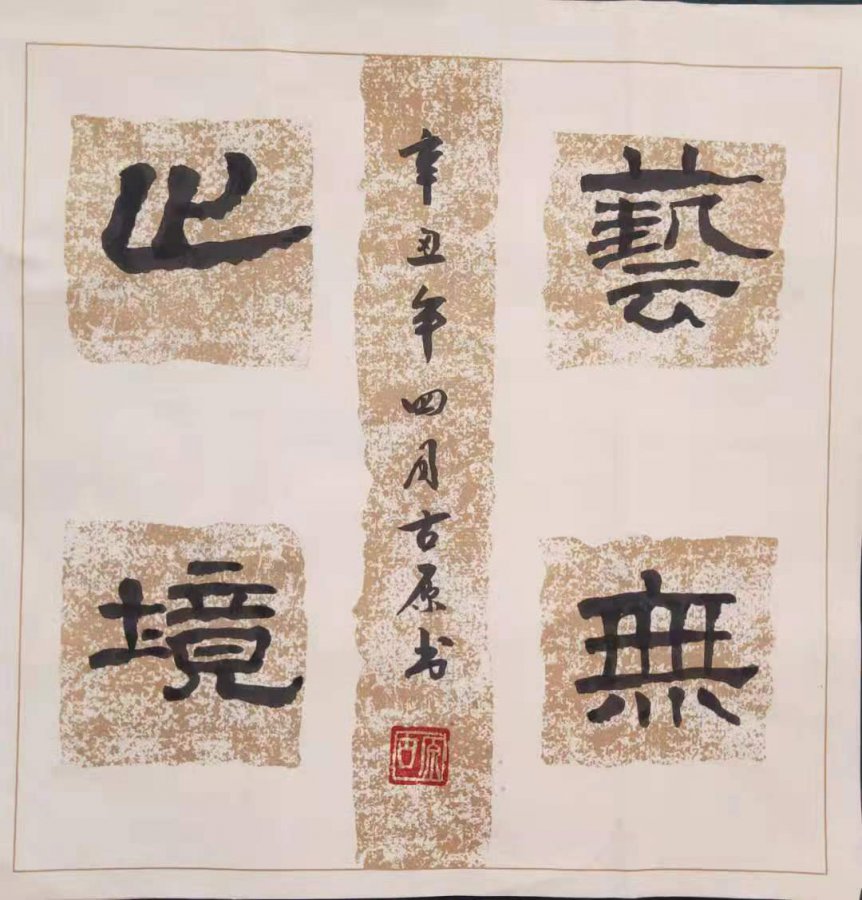 藝無
止境
辛丑年四月古原书
古原